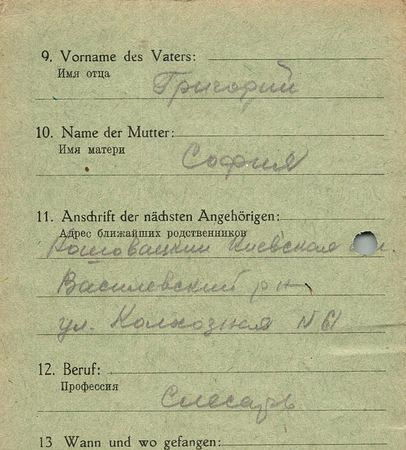 9. Vorname des Vaters:
Имя отца
Григорий
10. Name der Mutter:
Имя матери
София
11. Anschrift der nächsten Angehörigen:
Адрес ближайших родственников
Киевская
Василевский р-н
ул. Колхозная N 61
12. Beruf:
Профессия
Слесарь
13 Wann und wo gefangen: